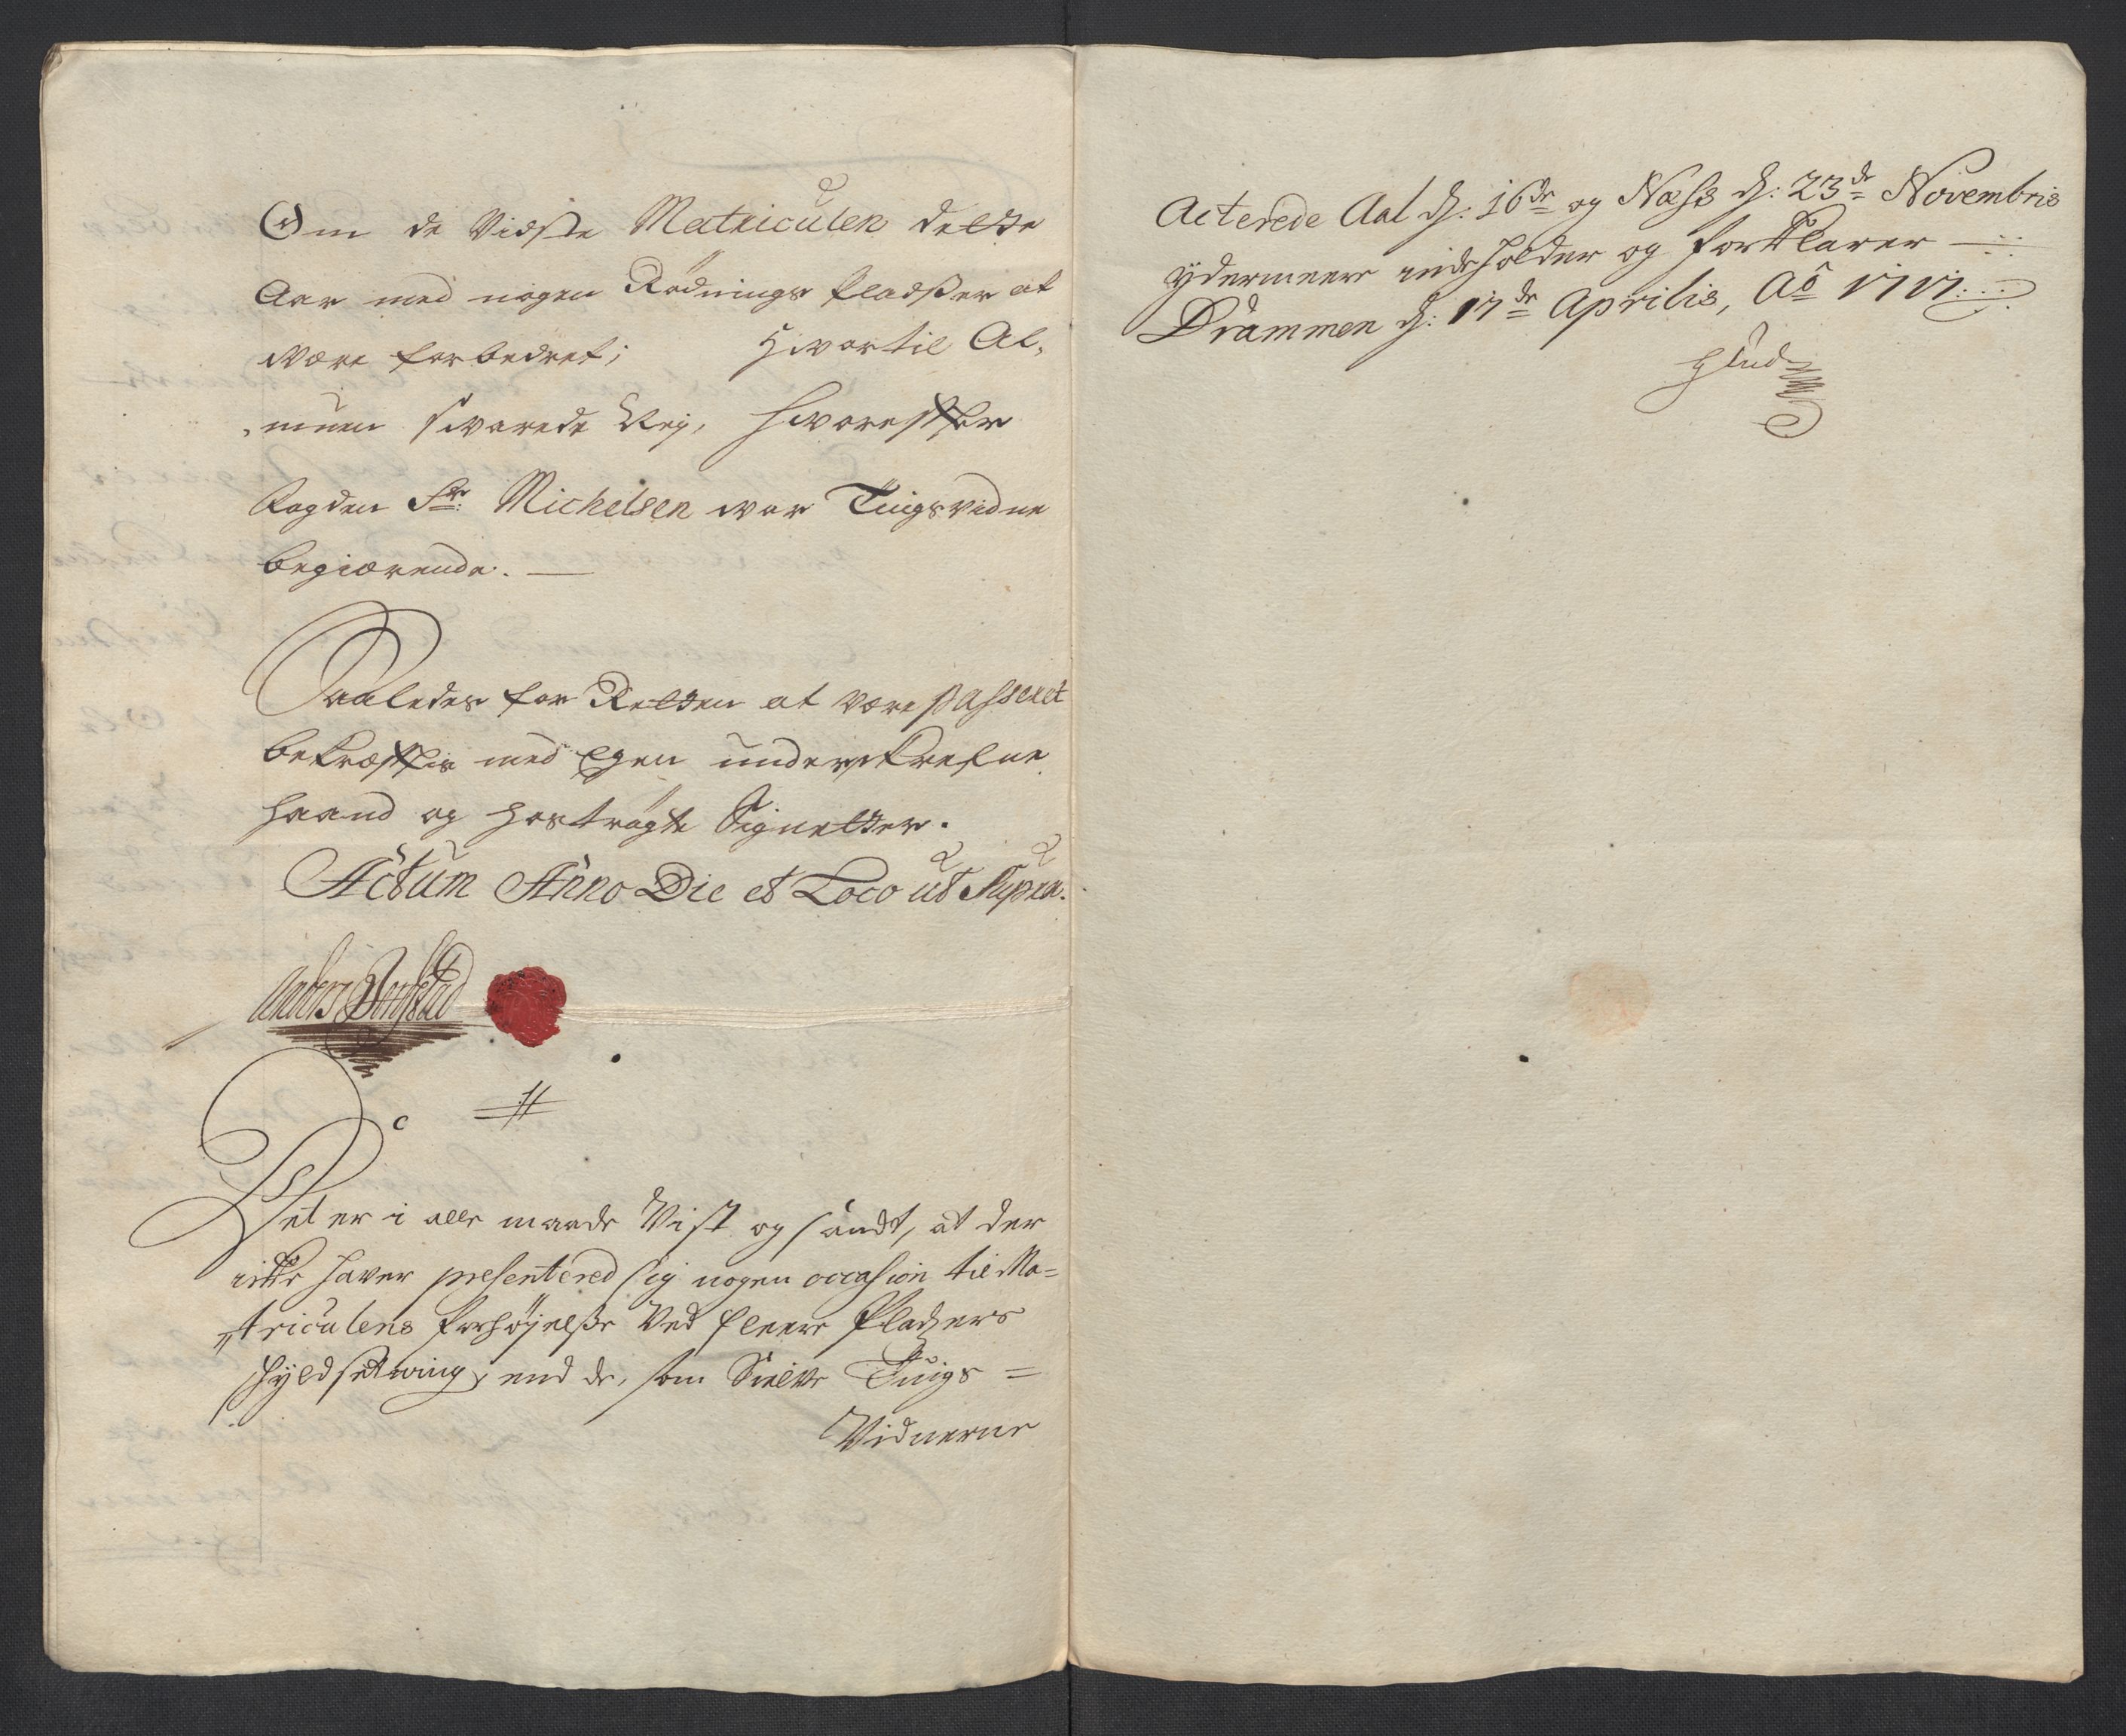 Om de Vidste Matriculen dette
Aar med nogen Rødnings Pladser at
være forbedret; Hvortil Al„
„muen svarede Nej, Hvorefter
Fogden Sr: Michelsen var Tingsvidne
begiærende. —
Saaledes for Retten at være passeret
bekræftis med Egen underskrefne
haand og hostrøgte Signetter.
Actum Anno Die et Loco ut Supra.
Anders
Det er i alle maade Vist og sandt, at der
icke haver presentered sig nogen occasion til Ma=
„triculens forhøjelse Ved fleere Pladzers
Skyldsetning, end de, som Sielve Tings=
Vidnerne
Acterede Aal d: 16de og Næss d: 23de Novembris
ydermeere indeholder og forklarer —
Drammen d: 17de Aprilis, Ao 1717.